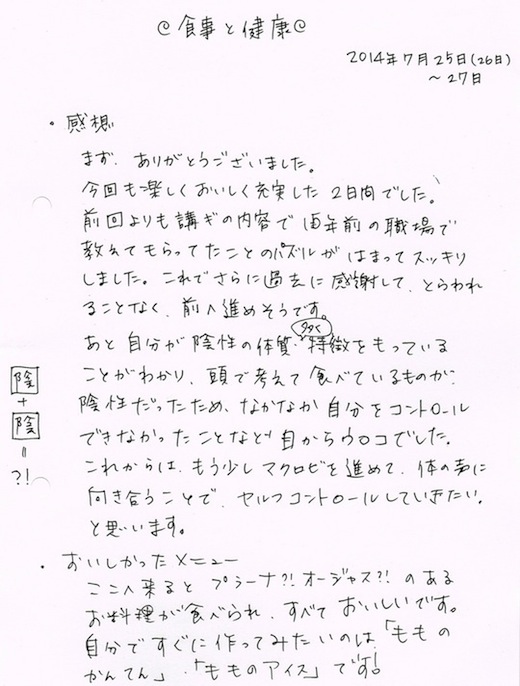 @食事と健康@
2014年7月25日(26日)
～27日
・感想
まず、ありがとうございました。
今回も楽しくおいしく充実した2日間でした。
前回よりも講ギの内容で 年前の職場で
教えてもらってたことのパズルが はまってスッキリ
しました。これでさらに過去に感謝して、とらわれ
ることなく、前へ進めそうです。
あと 自分が陰性の体質・特徴を多くもっている
ことがわかり、頭で考えて食べているものが、
陰性だったため、なかなか自分をコントロール
できなかったことなど目からウロコでした。
これからは、もう少しマクロビを進めて、体の声に
向き合うことで、セルフコントロールしていきたい、
と思います。
陰
+
陰
=
?!
・おいしかったメニュー
ここへ来ると プラーナ?!オージャス?!のある
お料理が食べられ、すべておいしいです。
自分ですぐに作ってみたいのは、「ももの
かんてん」・「もものアイス」です!